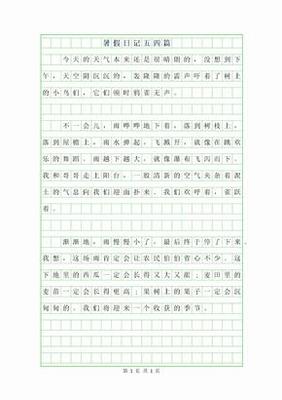 暑假日记五四篇
今天的天气本来还是很晴朗的，没想到下
午，天空阴沉沉的，轰隆隆的雷声吓着了树上
的小鸟们，它们顿时鸦雀无声。
不一会儿，雨哗哗地下着，落到树枝上，
落到屋檐上，雨水弹起，飞溅开，就像在跳欢
乐的舞蹈。雨越下越大，就像瀑布飞泻而下。
我和哥哥走上阳台，一股清新的空气夹杂着泥
土的气息向我们迎面扑来。我们欢呼着，雀跃
着。
渐渐地，雨慢慢小了，最后终于停了下来。
我想，这场雨肯定会让农民伯伯省心不少。这
下地里的西瓜一定会长得又大又甜；麦田里的
麦苗一定会长得更高；果树上的果子一定会沉
甸甸的。我们将迎来一个收获的季节。
第 1 页 共 1 页